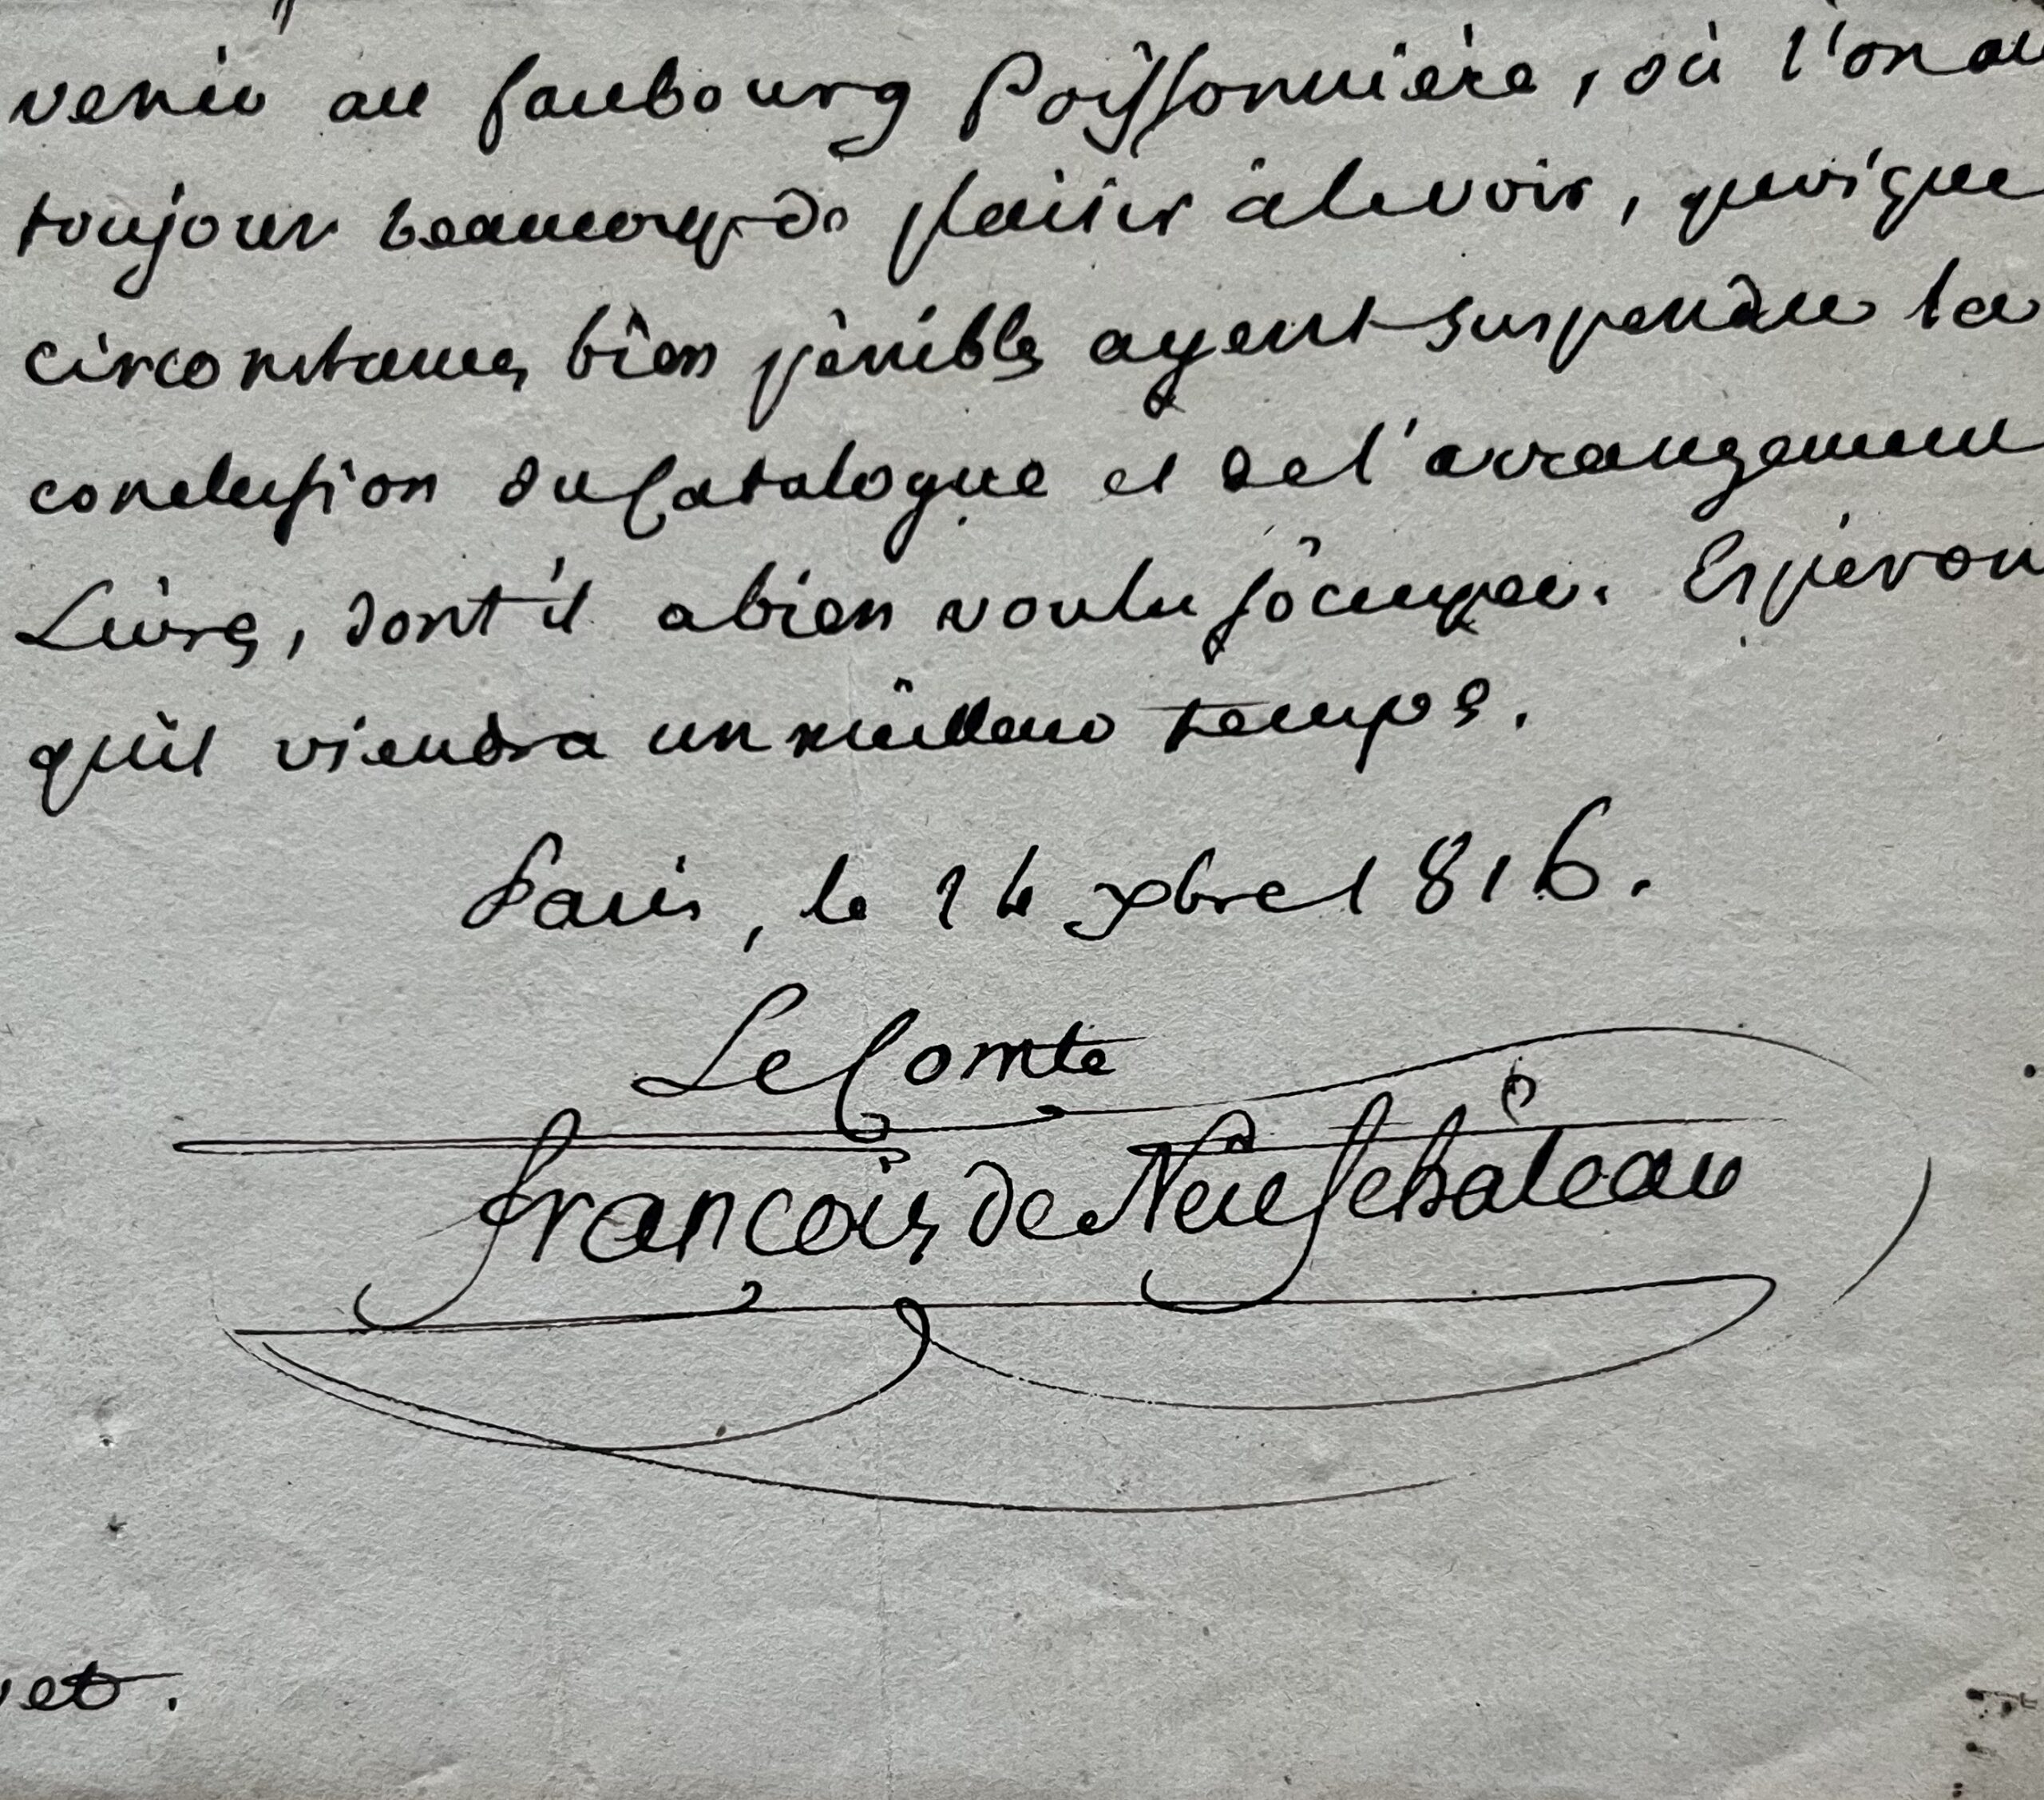 venir au faubourg Poissonnière, où l'on au
toujours beaucoup de plaisir à le voir, quoique
circonstances bien pénibles ayent suspendu la
conclusion du Catalogue et de l'arrangement
Livres, dont il a bien voulu s'ocuper. Espérons
qu'il viendra un meilleur temps.
Paris, le 14 xbre 1816.
Le Comte
françois de Neufchâteau
et.